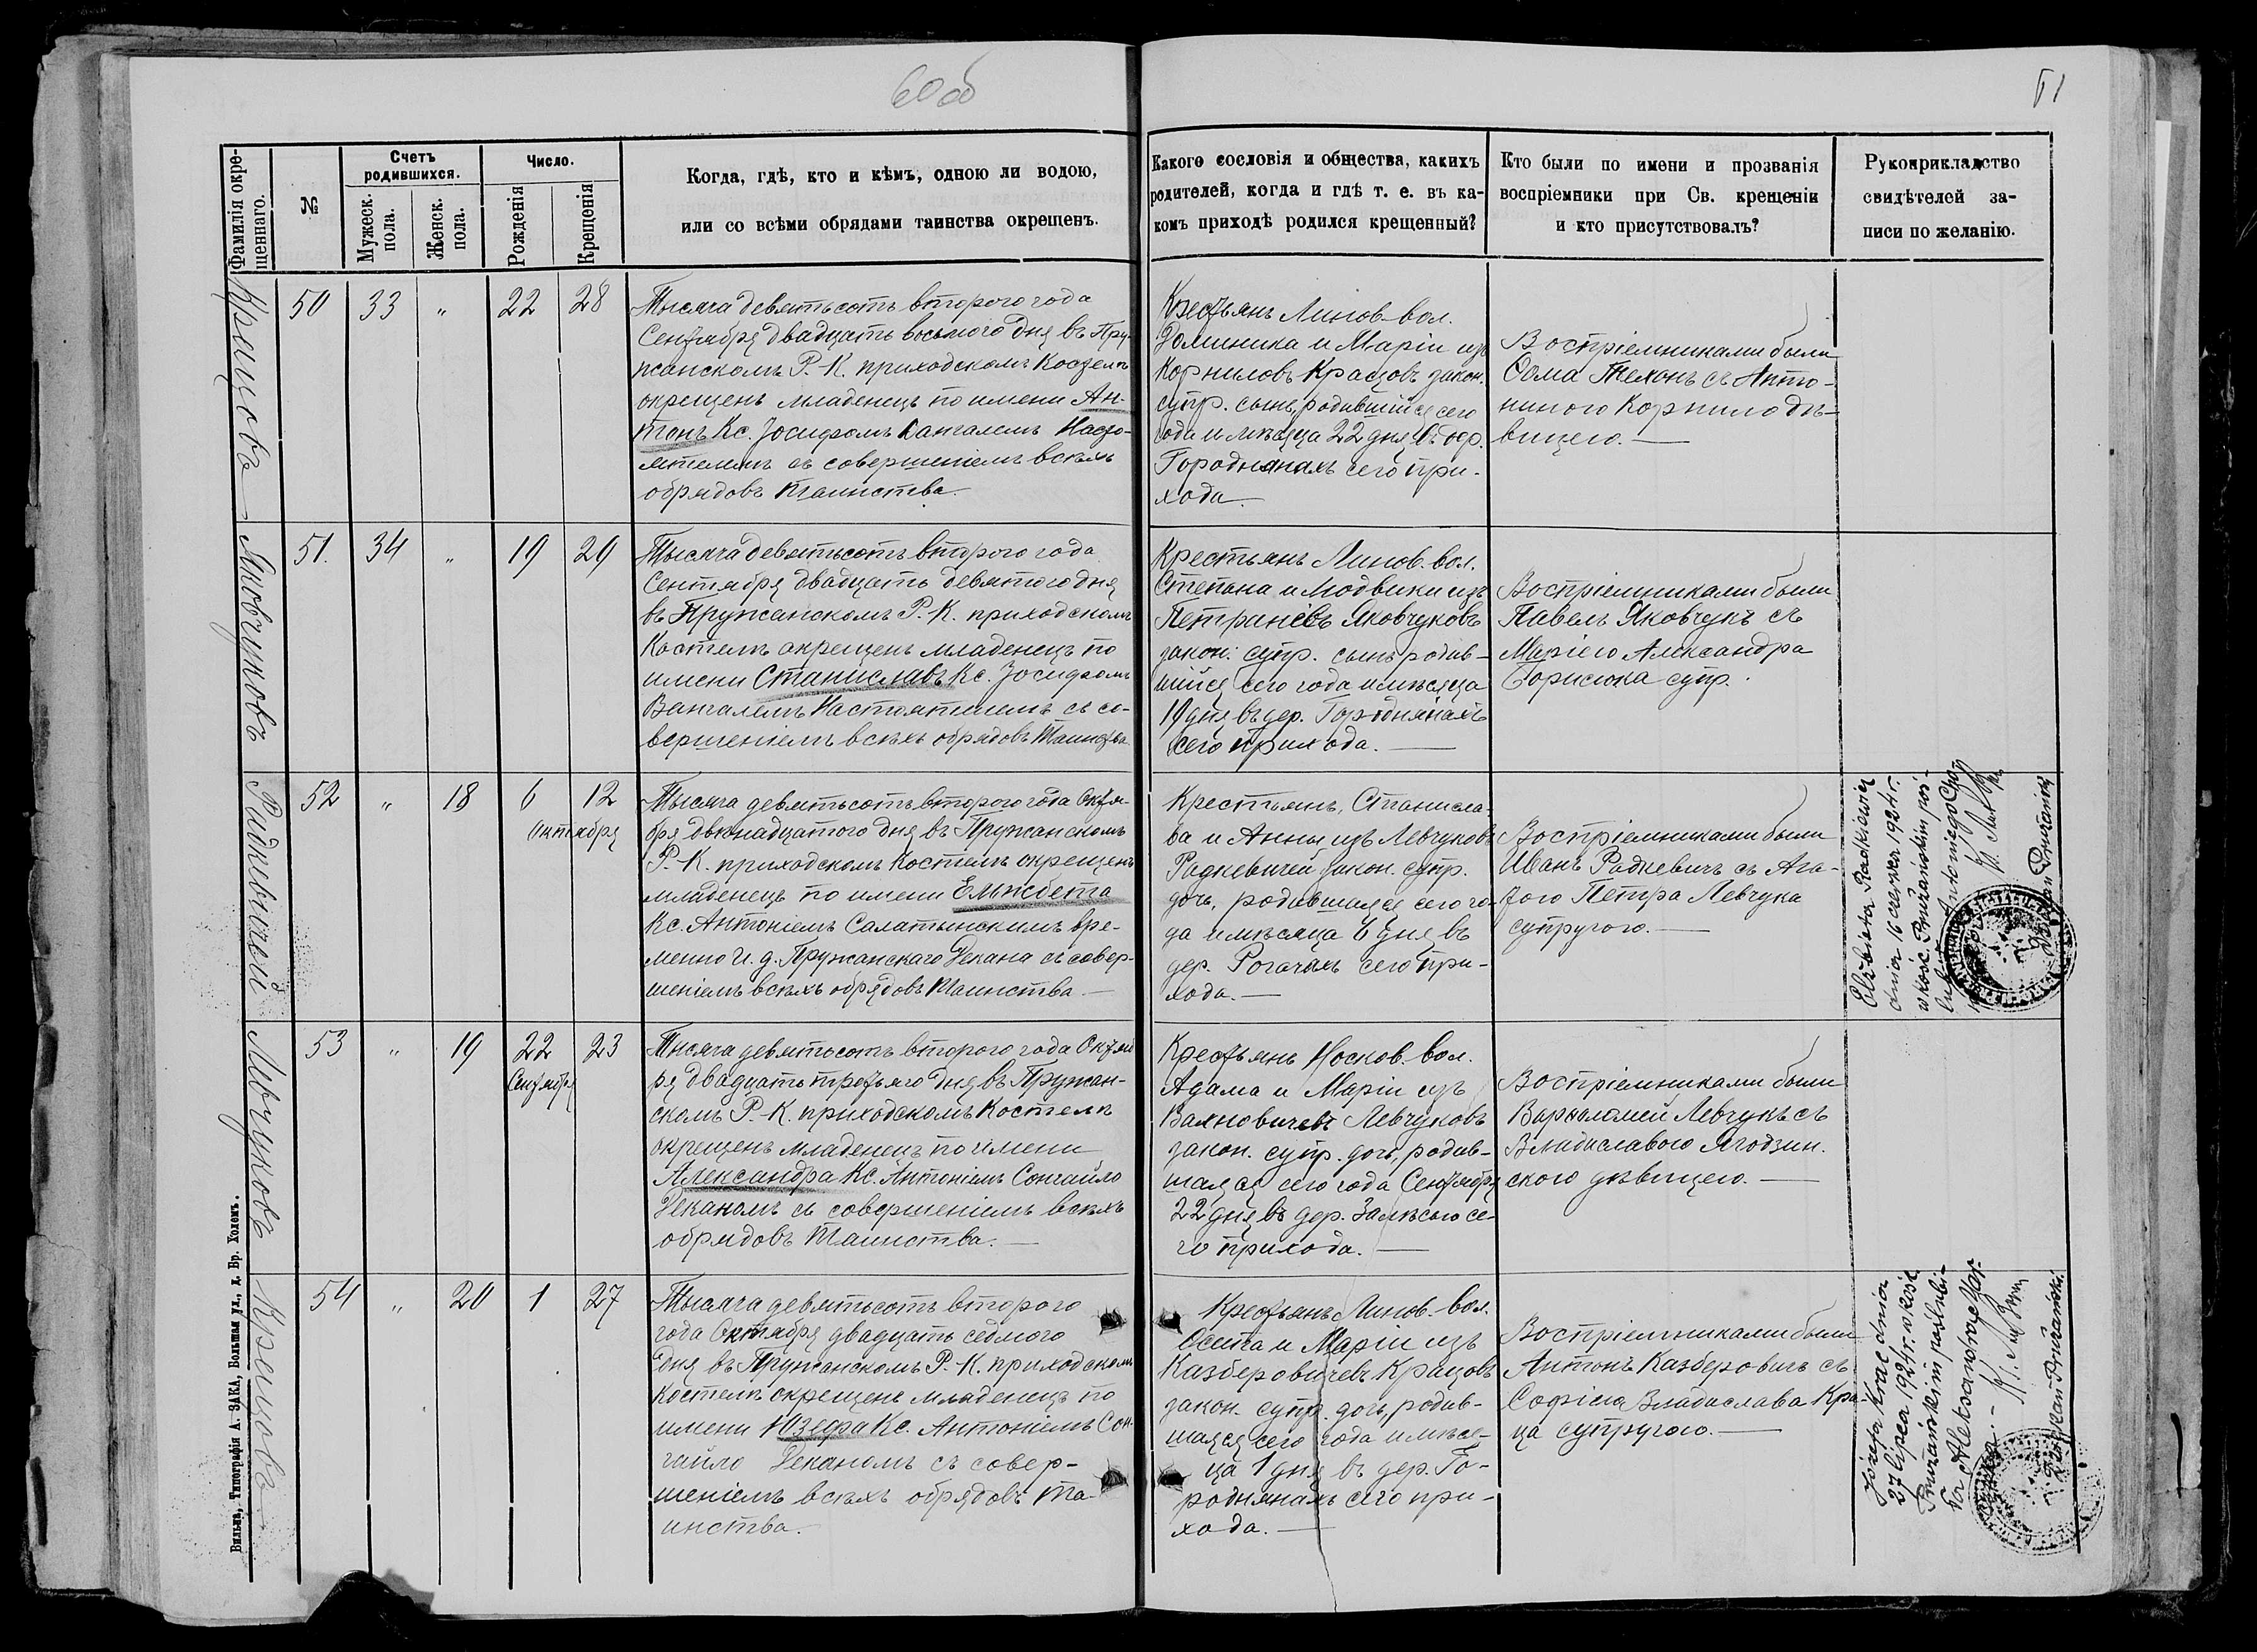 60 об
61
Фамилія окре-
щеннаго.
№
Счетъ
родившихся.
Мужеск.
пола.
Женск.
пола.
Число.
Рожденія
Крещенія
Когда, гдѣ, кто и кѣмъ, одною ли водою,
или со всѣми обрядами таинства окрещенъ.
Какого сословія и общества, какихъ
родителей, когда и гдѣ т. е. въ ка-
комъ приходѣ родился крещенный?
Кто были по имени и прозванія
воспріемники при Св. крещеніи
и кто присутствовалъ?
Рукоприкладство
свидѣтелей за-
писи по желанію.
Крацовъ
50
33
"
22
28
Тысяча девятьсотъ второго года
Сентября двадцать восьмого дня въ Пру-
жанскомъ Р.-К. приходскомъ Костелѣ
окрещенъ младенецъ по имени Ан-
тонъ Кс. Іосифомъ Вангалемъ Насто-
ятелемъ съ совершеніемъ всѣхъ
обрядовъ Таинства.
Крестьянъ Линов. вол.
Доминика и Маріи изъ
Корниловъ Крацовъ закон.
супр. сынъ, родившійся сего
года и мѣсяца 22 дня въ дер.
Городнянахъ сего при-
хода.
Воспріемниками были
Ѳома Техонъ съ Анто-
ниною Корнило дѣ-
вицею.
Яковчуковъ
51.
34
"
19
29
Тысяча девятьсотъ второго года
Сентября двадцать девятого дня
въ Пружанскомъ Р.-К. приходскомъ
Костелѣ окрещенъ младенецъ по
имени Станиславъ Кс. Іосифомъ
Вангалемъ Настоятелемъ съ со-
вершеніемъ всѣхъ обрядовъ Таинства
Крестьянъ Линов. вол.
Степана и Людвики изъ
Петраневъ Яковчуковъ
закон. супр. сынъ родив-
шійся сего года и мѣсяца
19 дня въ дер. Городнянахъ
сего прихода.
Воспріемниками были
Павелъ Яковчукъ съ
Маріею Александра
Борисюка супр.
Радкевичей
52
"
18
6
12
Октября
Тысяча девятьсотъ второго года Октя-
бря двѣнадцатого дня въ Пружанскомъ
Р.-К. приходскомъ Костелѣ окрещенъ
младенецъ по имени Ельжбета
Кс. Антоніемъ Салатынскимъ вре-
менно И. д. Пружанскаго Декана съ совер-
шеніемъ всѣхъ обрядовъ Таинства
Крестьянъ, Станисла-
ва и Анны изъ Левчуковъ
Радкевичей закон. супр.
дочь, родившаяся сего го-
да и мѣсяца 6 дня въ
дер. Рогачахъ сего при-
хода.
Воспріемниками были
Иванъ Радкевичъ съ Ага-
ѳою Петра Левчука
супругою.
Elżbieta Radkiewicz
dnia 16 czerwca 1924 r.
w kość. Prużańskim poś-
Antoniego
Dziekan Prużański
Левчуковъ
53
"
19
22
23
Сентября
Тысяча девятьсотъ второго года Октяб
ря двадцать третьяго дня въ Пружан-
скомъ Р.-К. приходскомъ Костелѣ
окрещенъ младенецъ по имени
Александра Кс. Антоніемъ Сонгайло
Деканомъ съ совершеніемъ всѣхъ
обрядовъ Таинства.
Крестьянъ Носков. вол.
Адама и Маріи изъ
Вахновичевъ Левчуковъ
закон. супр. дочь, родив-
шаяся сего года Сентября
22 дня въ дер. Залѣсью се-
го прихода.
Воспріемниками были
Варѳоломей Левчукъ съ
Владиславою Ягодзин.
скою дѣвицею.
Крацовъ
54
"
20
1
27
Тысяча девятьсотъ второго
года Октября двадцать седмого
дня въ Пружанскомъ Р.-К. приходскомъ
Костелѣ окрещенъ младенецъ по
имени Юзефа Кс. Антоніемъ Сон-
гайло Деканомъ съ совер-
шеніемъ всѣхъ обрядовъ Та-
инства.
Крестьянъ Линов. вол.
Осипа и Маріи изъ
Казберовичевъ Крацовъ
закон. супр. дочь, родив-
шаяся сего года и мѣся-
ца 1 дня въ дер. Го-
роднянахъ сего при-
хода.
Воспріемниками были
Антонъ Казберовичъ съ
Софіею Владислава Кра-
ца супругою.
Józefa Krac dnia
27 lipca 1924 r. w kość.
Prużańskim poślubi-
Aleksandra
Dziekan Prużański.
Вильна, Типографія А. ЗАКА, Большая ул., д. Бр. Холемъ.